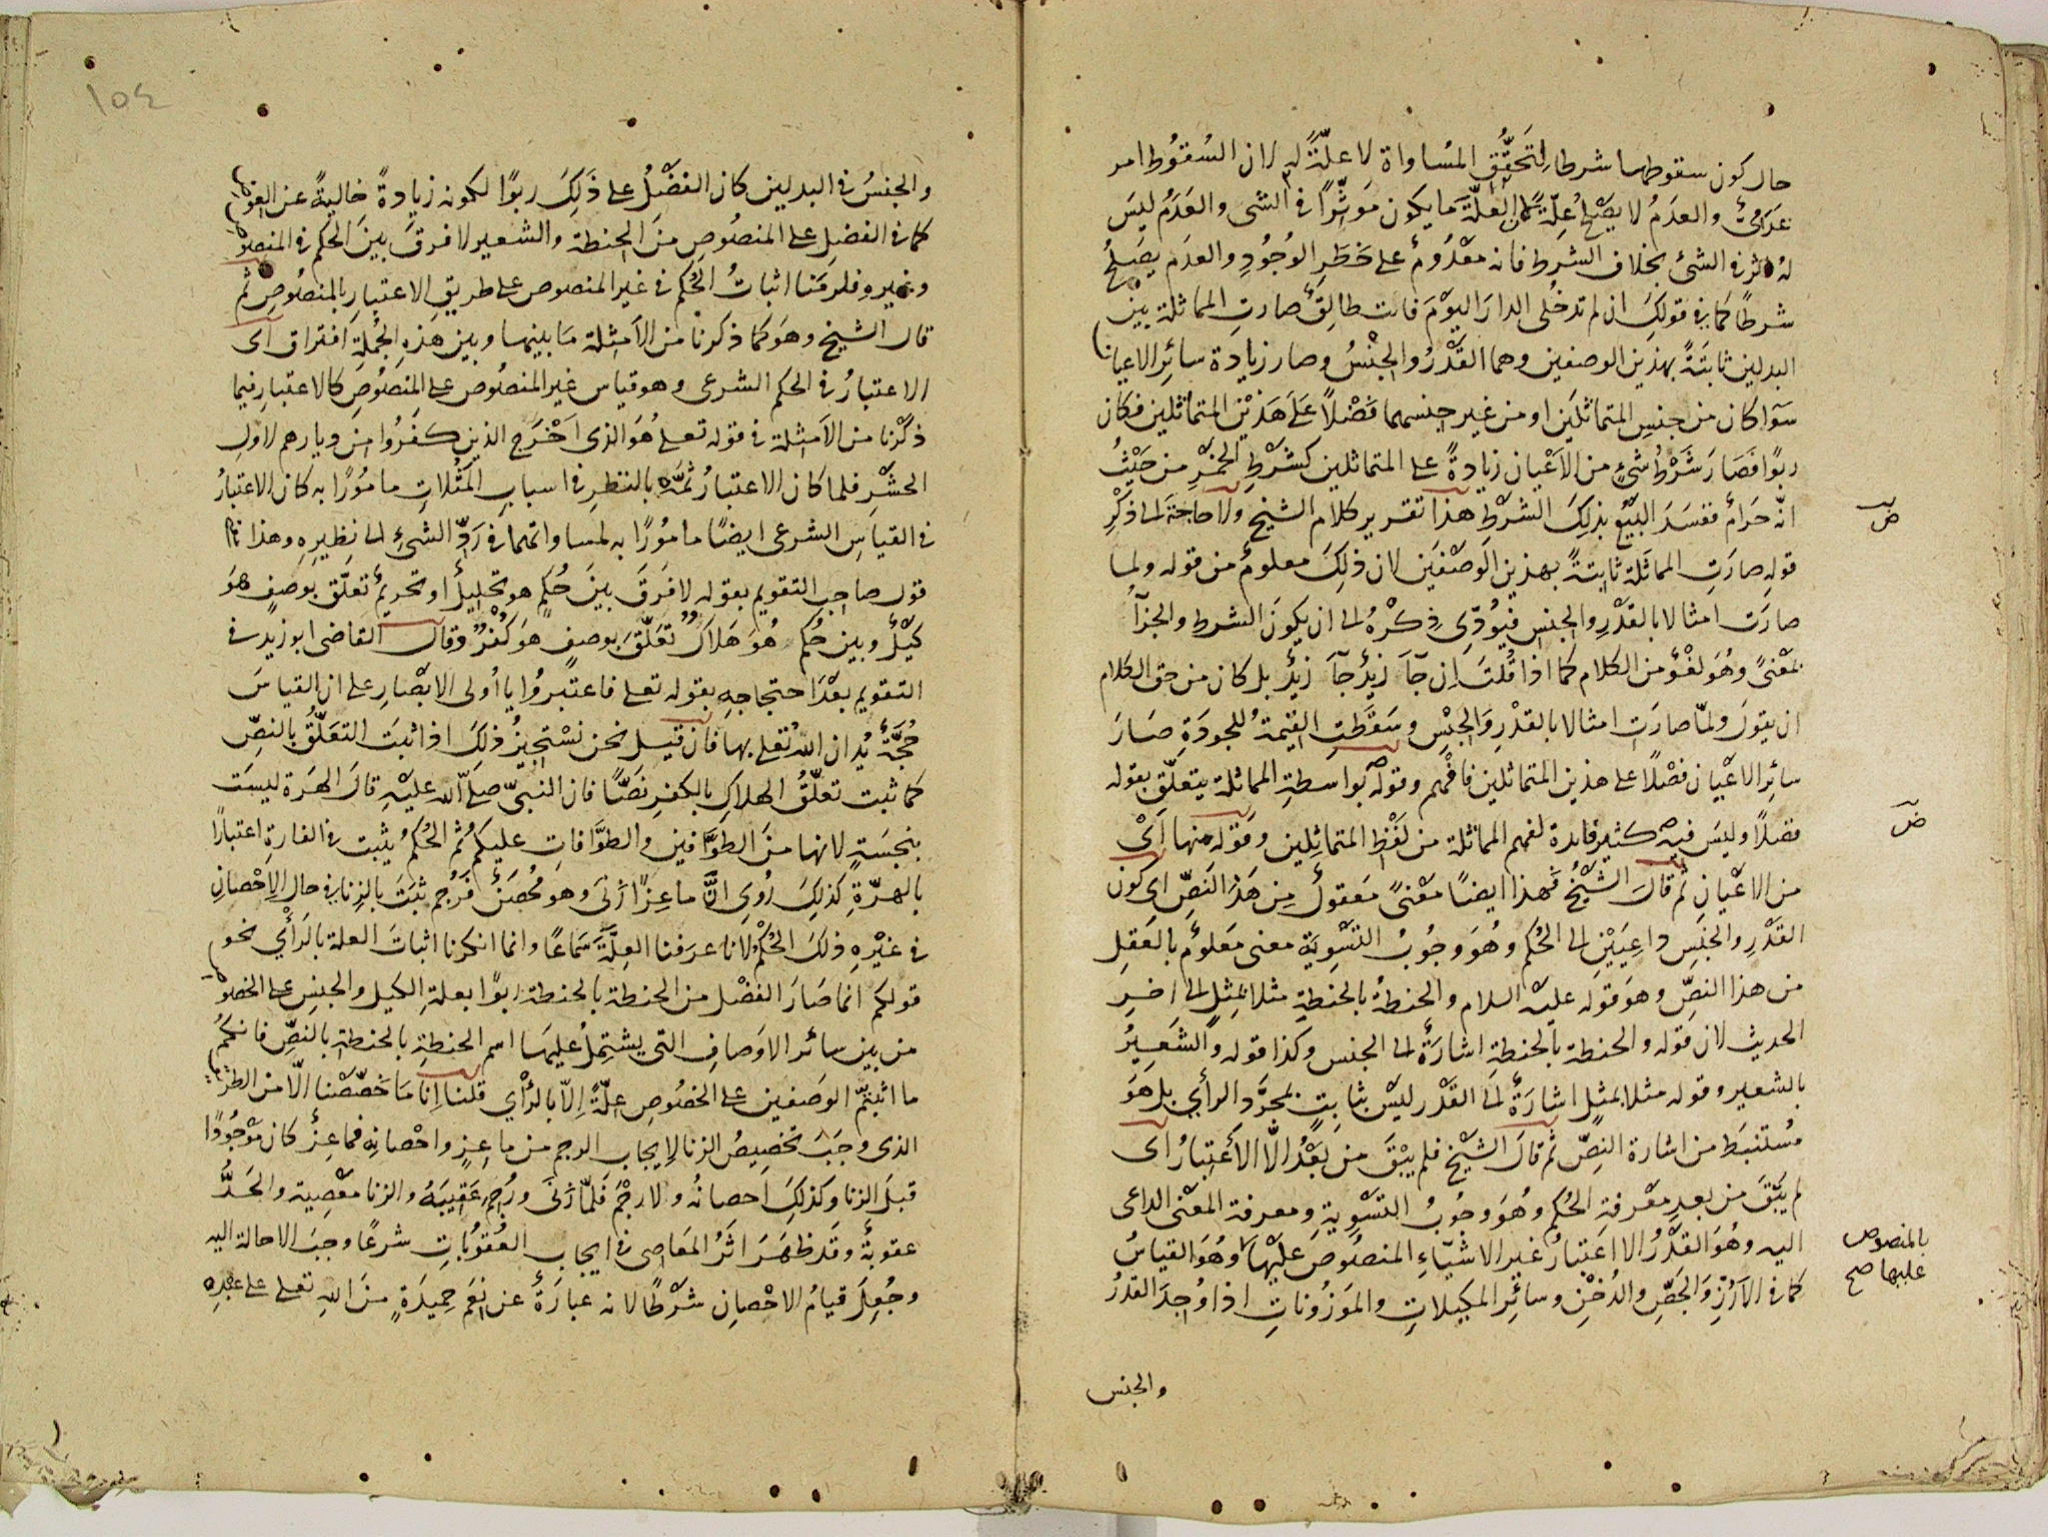 حال كون سقوطهما شرطا لِتَحَقُّقِ المُساواة لا علّةً له لان السُقوُط امر
عَدَمىٌّ والعدَمُ لا يصْلحُ عِلّةً لان العلّة ما يكون مَوثِّراً فى الشى والعَدَمُ ليسَ
لهُ اثر فى الشئ بخلاف الشرط فانه معْدُومٌ على خَطَرِ الوُجُودِ والعدَم يَصْلحُ
شرطًا كما فى قولكَ ان لم تدخُلى الدارَ اليوْمَ فانت طالِقٌ صارتِ المماثلة بيْن
البدلين ثابتَةً بهذين الوصفين وهما القَدْرُ والجنْسُ وصار زيادَة سائر الاعيان
سَوَا كان من جنسِ المتماثلَين او من غير جِنسهما فَضْلاً عَلَى هَذَيْن المتماثلين فكان
ربوًا فَصَارَ شَرْطُ شئٍ من الاَعْيان زيادةً على المتماثلين كشَرْطِ الخمْرِ من حَيْثُ
انّه حَرامٌ ففسَدَ البَيْعُ بذلِكَ الشَرْطِ هذا تقرير كلام الشيخ ولا حاجَةَ الى ذِكْرِ
قولِهِ صارَتِ المماثَلة ثابتةً بهذين الوَصْفَين لان ذلِكَ معلومٌ من قوله ولما
صارَت امثالا بالقَدْرِ والجنس فيُوَدِّى ذِكْرهُ الى ان يكونَ الشرط والجزآُ
بمَعْنىً وهُوَ لغْوٌ من الكلام كما اذا قُلتَ اِن جآَ زيْدٌ جآَ زيْدٌ بل كان من حق الكلام
ان يقولَ ولمّا صارَتِ امثالا بالقدْرِ وَالجِنْسِ وسَقَطَتِ القيْمةُ للجودَةِ صَارَ
سائِر الاَعْيان فضْلاً على هذين المتماثلين فافْهم وقولُه بواسطةِ المماثلة يتعلّق بقوله
فضلاً وليسَ فيه كثير فايدة لفهم المماثلة من لفْظِ المتماثِلين وقَوله منها اَىْ
من الاَعْيانِ ثم قالَ الشيْخُ فهذا ايضًا مَعْنىً مَعقولٌ مِن هَذا النَصِّ اى كون
القَدْرِ والجنسِ داعِيَيْنِ الى الحُكم وهُوَ وجُوبُ التَسْوِيَة معنى مَعلومٌ بالعَقلِ
من هذا النصِّ وهوَ قوله عليه السلام والحنطةُ بالحنطةِ مثلا بمثلٍ الى اخرِ
الحديث لان قوله والحنطة بالحنطةِ اشارَةٌ الى الجنس وكذا قوله والشَعِيرُ
بالشعير وقوله مثلا بمثل اشارَةٌ الى القَدْر ليْسَ بثابتٍ بمجرَّد الرأي بل هوَ
مُستنبَط من اشارة النصِّ ثم قالَ الشيْخ فلم يبْقَ من بعْدُ الاّ الاعْتبارُ اى
لم يَبْقَ من بعدِ معْرفةِ الحُكم وهُوَ وجُوبُ التَسْوِيةِ ومعرفة المعْنى الداعى
اليه وهُوَ القدْرُ الا اعتبارُ غير الاشيآءِ المنصُوصِ عليْها وهُوَ القياسُ
كما فى الاَرُزِّ والجَصِّ والدُخْنِ وسائر المكيلاتِ والموَزُوناتِ اذا وُجِدَ القدْرُ
والجنس
ض
ض
بالمنصوص
عليها صح
١٥٤
والجِنسُ فى البدلين كان الفضْلُ على ذَلِكَ ربوًا لكونه زيادةً خاليةً عن العوض
كما فى الفضلِ على المنصُوصِ منَ الحِنطة والشعير لا فرقَ بينَ الحكم فى المنصوص
وغيره فلزمَنا اثباتُ الحُكم فى غير المنصوص على طريق الاعتبارِ بالمنصُوصِ ثم
قال الشيخ وهَوَ كما ذكرنا من الاَمثلة مَا بينها وبين هذهِ الجُملةِ افتراق اى
الاعتبارُ فى الحكم الشرعى وهو قياس غير المنصُوص على المنصُوصِ كالاعتبار فيما
ذكرْنا من الاَمثلة فى قوله تعلى هُوَ الذى اَخْرَجَ الذين كفَرُوا من ديارهم لاول
الحشْرِ فلما كان الاعتبارُ ثَمَّه بالنظرِ فى اسبابِ المَثُلاتِ مامُورًا به كان الاعتبارُ
فى القياسِ الشرعى ايضًا مامُوْرًا به لمساواتهما فى رَدِّ الشئِ الى نظِيرِهِ وهذا تمام
قول صاحب التقويم بقوله لا فَرقَ بينَ حُكمٍ هو تحليلٌ او تحريمٌ تعلّق بوصفٍ هوَ
كيْلٌ وبين حُكمٍ هُوَ هَلاكٌ تعَلّقَ بوصفٍ هوَ كُفْرٌ وقال القاضى ابو زيد فى
التقويم بعْدَ احتجاجهِ بقوله تعلى فاعتبرُوا يا اُولى الابْصار على ان القياسَ
حُجّةٌ يُدان اللهُ تعلى بها فان قيل نحن نسْتجيْزُ ذلكَ اذا ثبتَ التعَلّقُ بالنصِّ
كما ثبت تعلّقُ الهلاكِ بالكفرِ نصًّا فان النبىّ صلى الله عليْهِ قالَ الهرة ليسَت
بنجسَتٍ لانها منَ الطوَّافين والطوَّافاتِ عليكمُ ثم الحُكمُ يثبت فى الفارةِ اعتبارًا
بالهرّةِ كذلِكَ رُوِى اَنَّ ماعِزًا زَنَى وهوَ مُحْصَنٌ فرُجم ثبَتَ بالزنا فى حال الاِحْصانِ
فى غيْرِهِ ذلكَ الحُكمُ لانا عرَفنا العِلّةَ سَماعًا وانما انكرنا اثباتَ العلة بالرَأْي نحو
قولكم انما صَارَ الفضْل من الحنطة بالحنطة ربوًا بعلةِ الكيل والجنسِ على الخصوص
من بين سائر الاوَصافِ التى يشتمِلُ عليهَا اسم الحنطةِ بالحنطةِ بالنصِّ فانكمْ
ما اثبتّم الوَصفين على الخصُوصِ علّةً اِلاّ بالرَأْي قلنا اِنّا مَا خَصّصْنا الاّ من الطريق
الذى وجَبَ تخصِيصُ الزنا لاِيجابِ الرجم من ماعِزٍ واحْصانِهِ فماعِزٌ كان مَوْجُودًا
قبلَ الزنا وكذلكَ احصانُه ولا رجْمَ فَلمّا زَنَى ورُجمَ عَقِيبَهُ والزنا معْصِية والحَدُّ
عقوبةٌ وقد ظهَرَ اثَرُ المَعَاصى فى ايجابِ العُقوُباتِ شرعًا وجبَ الاحالة اليه
وجُعِلَ قيامُ الاحْصانِ شَرْطًا لانه عبارَةٌ عن نِعَمٍ حميدَةٍ منَ اللهِ تعلى على عبْدِهِ